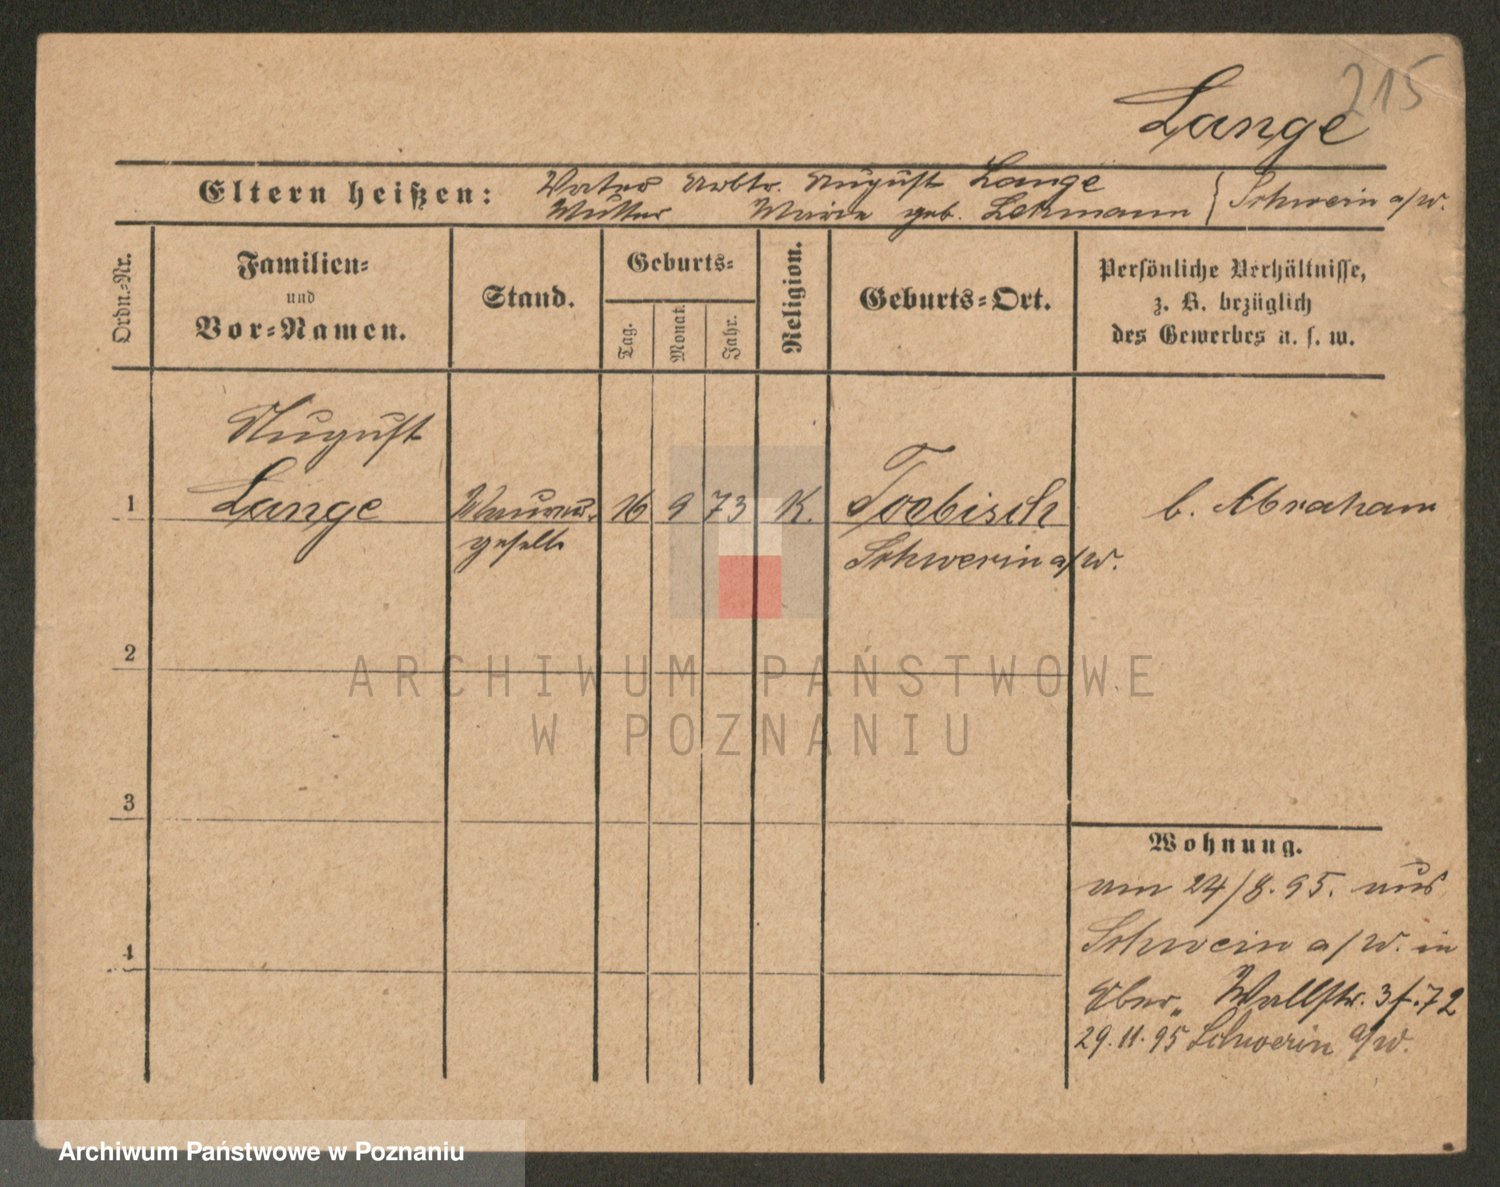 215
Lange
Eltern heißen: Vater Arbtr. August Lange
Mutter Marie geb. Lehmann } Schwerin a/W.
Ordn.-Nr.
Familien-
und
Vor-Namen.
Stand.
Geburts-
Tag.
Monat.
Jahr.
Religion.
Geburts-Ort.
Persönliche Verhältnisse,
z. B. bezüglich
des Gewerbes u. s. w.
August
1 Lange Maurer- 16 9 73 K. Toebisch b. Abraham
geselle Schwerin a/W.
2
3
4
Wohnung.
am 24/8. 95. aus
Schwerin a/W. in
Wallstr. 3 f. 72
29. 11. 95 Schwerin a/W.
ARCHIWUM PAŃSTWOWE
W POZNANIU
Archiwum Państwowe w Poznaniu